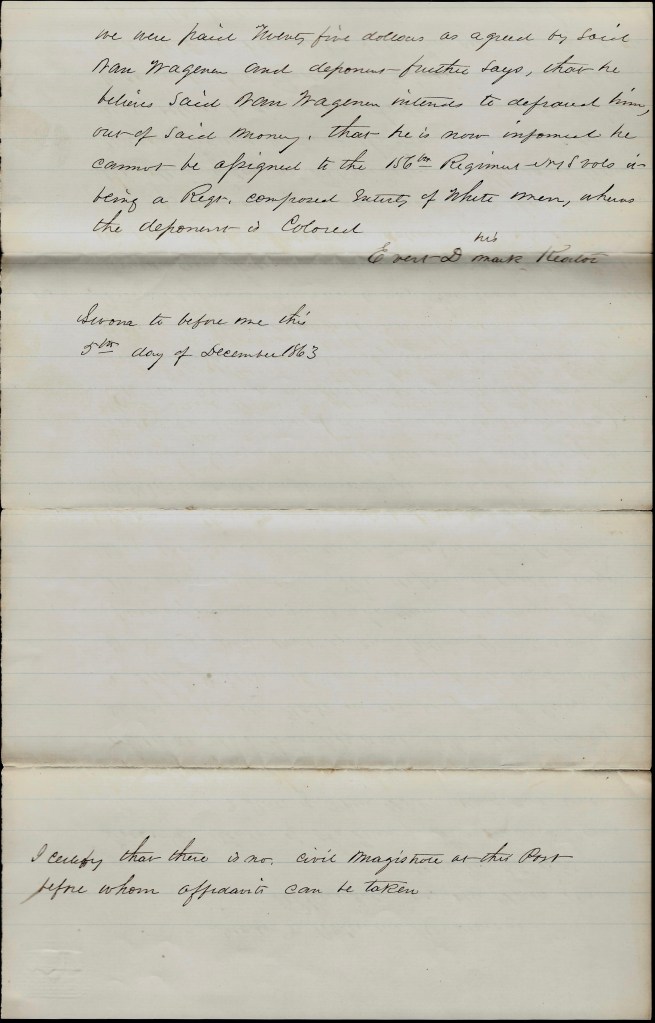 we were paid Twenty five dollars as agreed by Said
Van Wagenen and deponent further says, that he
believes Said Van Wagenen intends to defraud him,
out of Said money. that he is now informed he
cannot be assigned to the 156th Regiment N Y S vols it
being a Regt. composed Entirely of White men, wheras
the deponent is Colored
his
Evert D mark
Sworn to before me this
5th day of December 1863
I certify that there is no. civil Magistrate at this Post
before whom affidavits can be taken